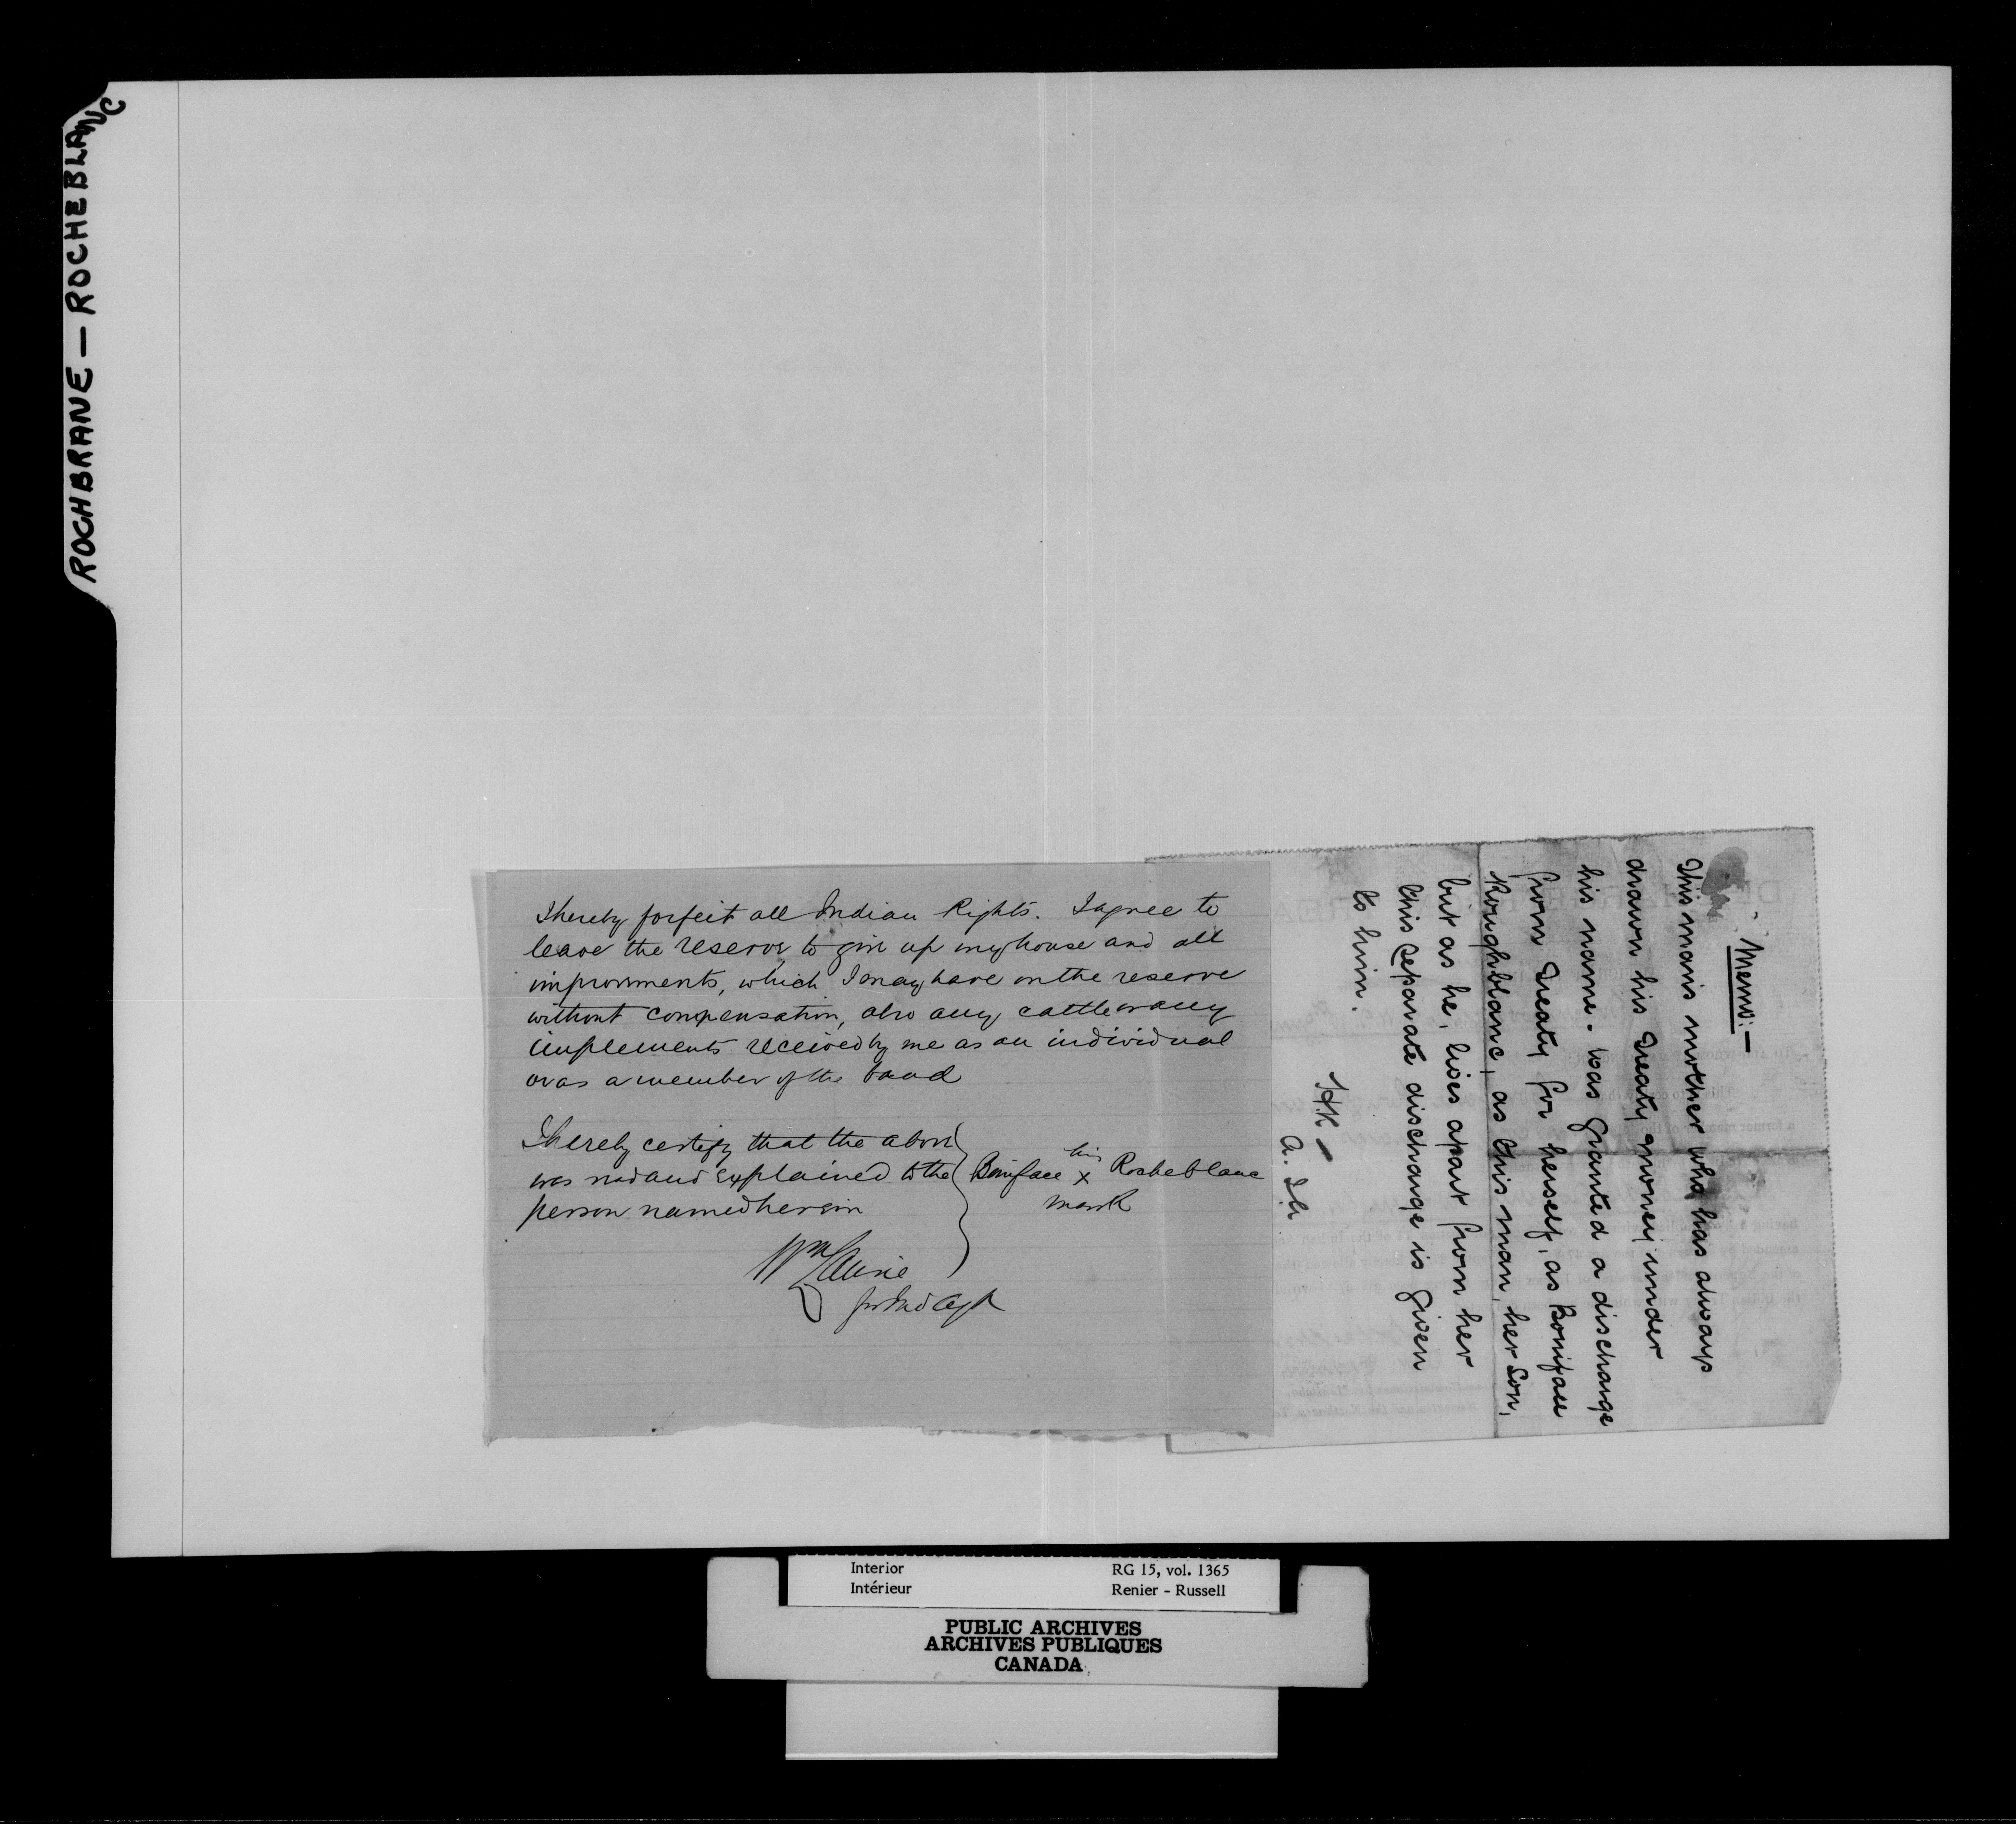 ROCHBRANE — ROCHEBLANC
I hereby forfeit all Indian Rights. I agree to
leave the reserve to give up my house and all
improvments, which I may have on the reserve
without compensation, also any cattle or any
implements received by me as an individual
or as a member of the band
I hereby certify that the above
was read and explained to the
person named herein
Boniface his x mark Rocheblanc
Wm Laurie
for Ind Agt
Memo:—
This man's mother who has always
drawn his Treaty money under
his name - was granted a discharge
from Treaty for herself, as Boniface
Roughblanc, as this man, her son,
but as he, lives apart from her
this separate discharge is given
to him.
Interior
Intérieur
RG 15, vol. 1365
Renier - Russell
PUBLIC ARCHIVES
ARCHIVES PUBLIQUES
CANADA